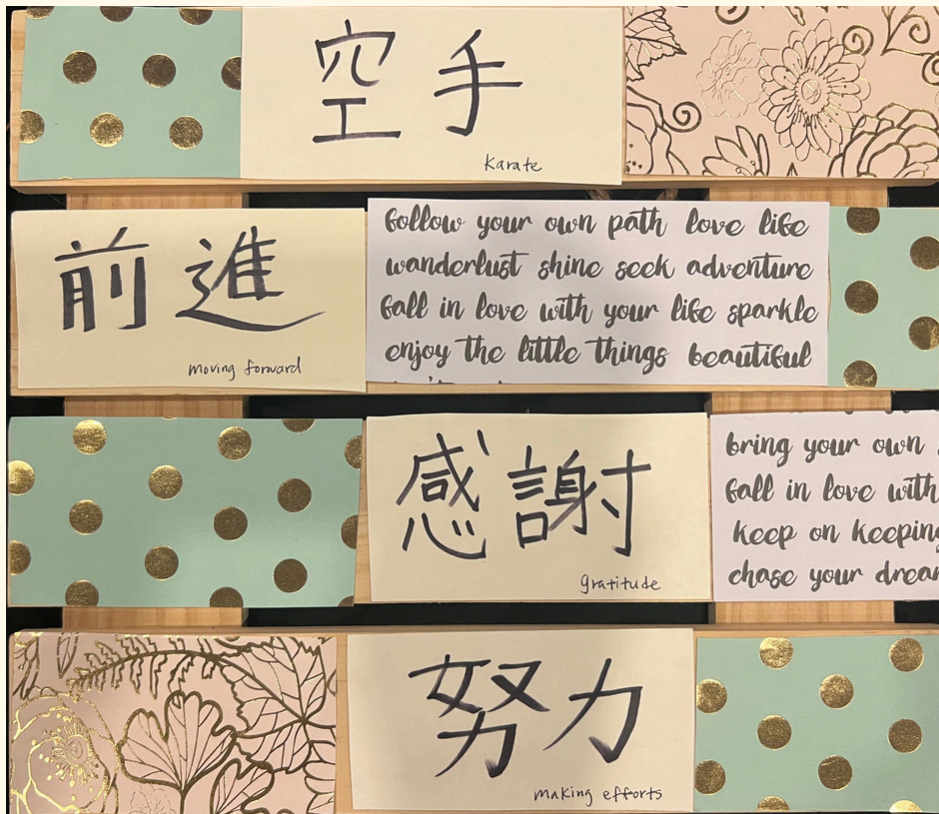 空手
karate
前進
moving forward
follow your own path love life
wanderlust shine seek adventure
fall in love with your life sparkle
enjoy the little things beautiful
感謝
gratitude
bring your own
fall in love with
keep on keeping
chase your
努力
making efforts